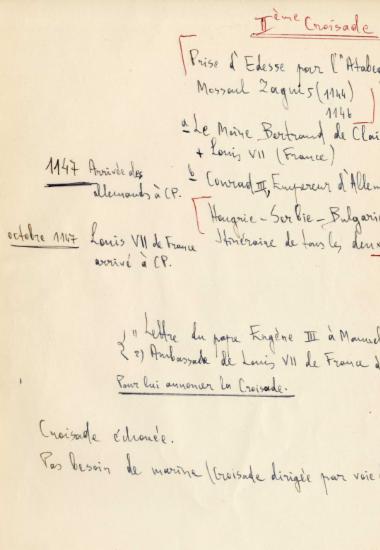 IIème Croisade
Prise d'Edesse pour l'"Atabec
Mossoul Zaguis (1144)
1146
a Le Moine Bertrand de Clai
+ Louis VII (France)
1147 Arrivée des
allemands à CP.
b Conrad III, Empereur d'Allem
Hongrie - Serbie - Bulgarie
octobre 1147 Louis VII de France
arrivé à CP.
Itinéraire de tous les deux
1) Lettre du pape Eugène III à Manuel
2) Ambassade de Louis VII de France d
Pour lui annoncer la Croisade.
Croisade échouée.
Pas besoin de marine (Croisade dirigée par voie